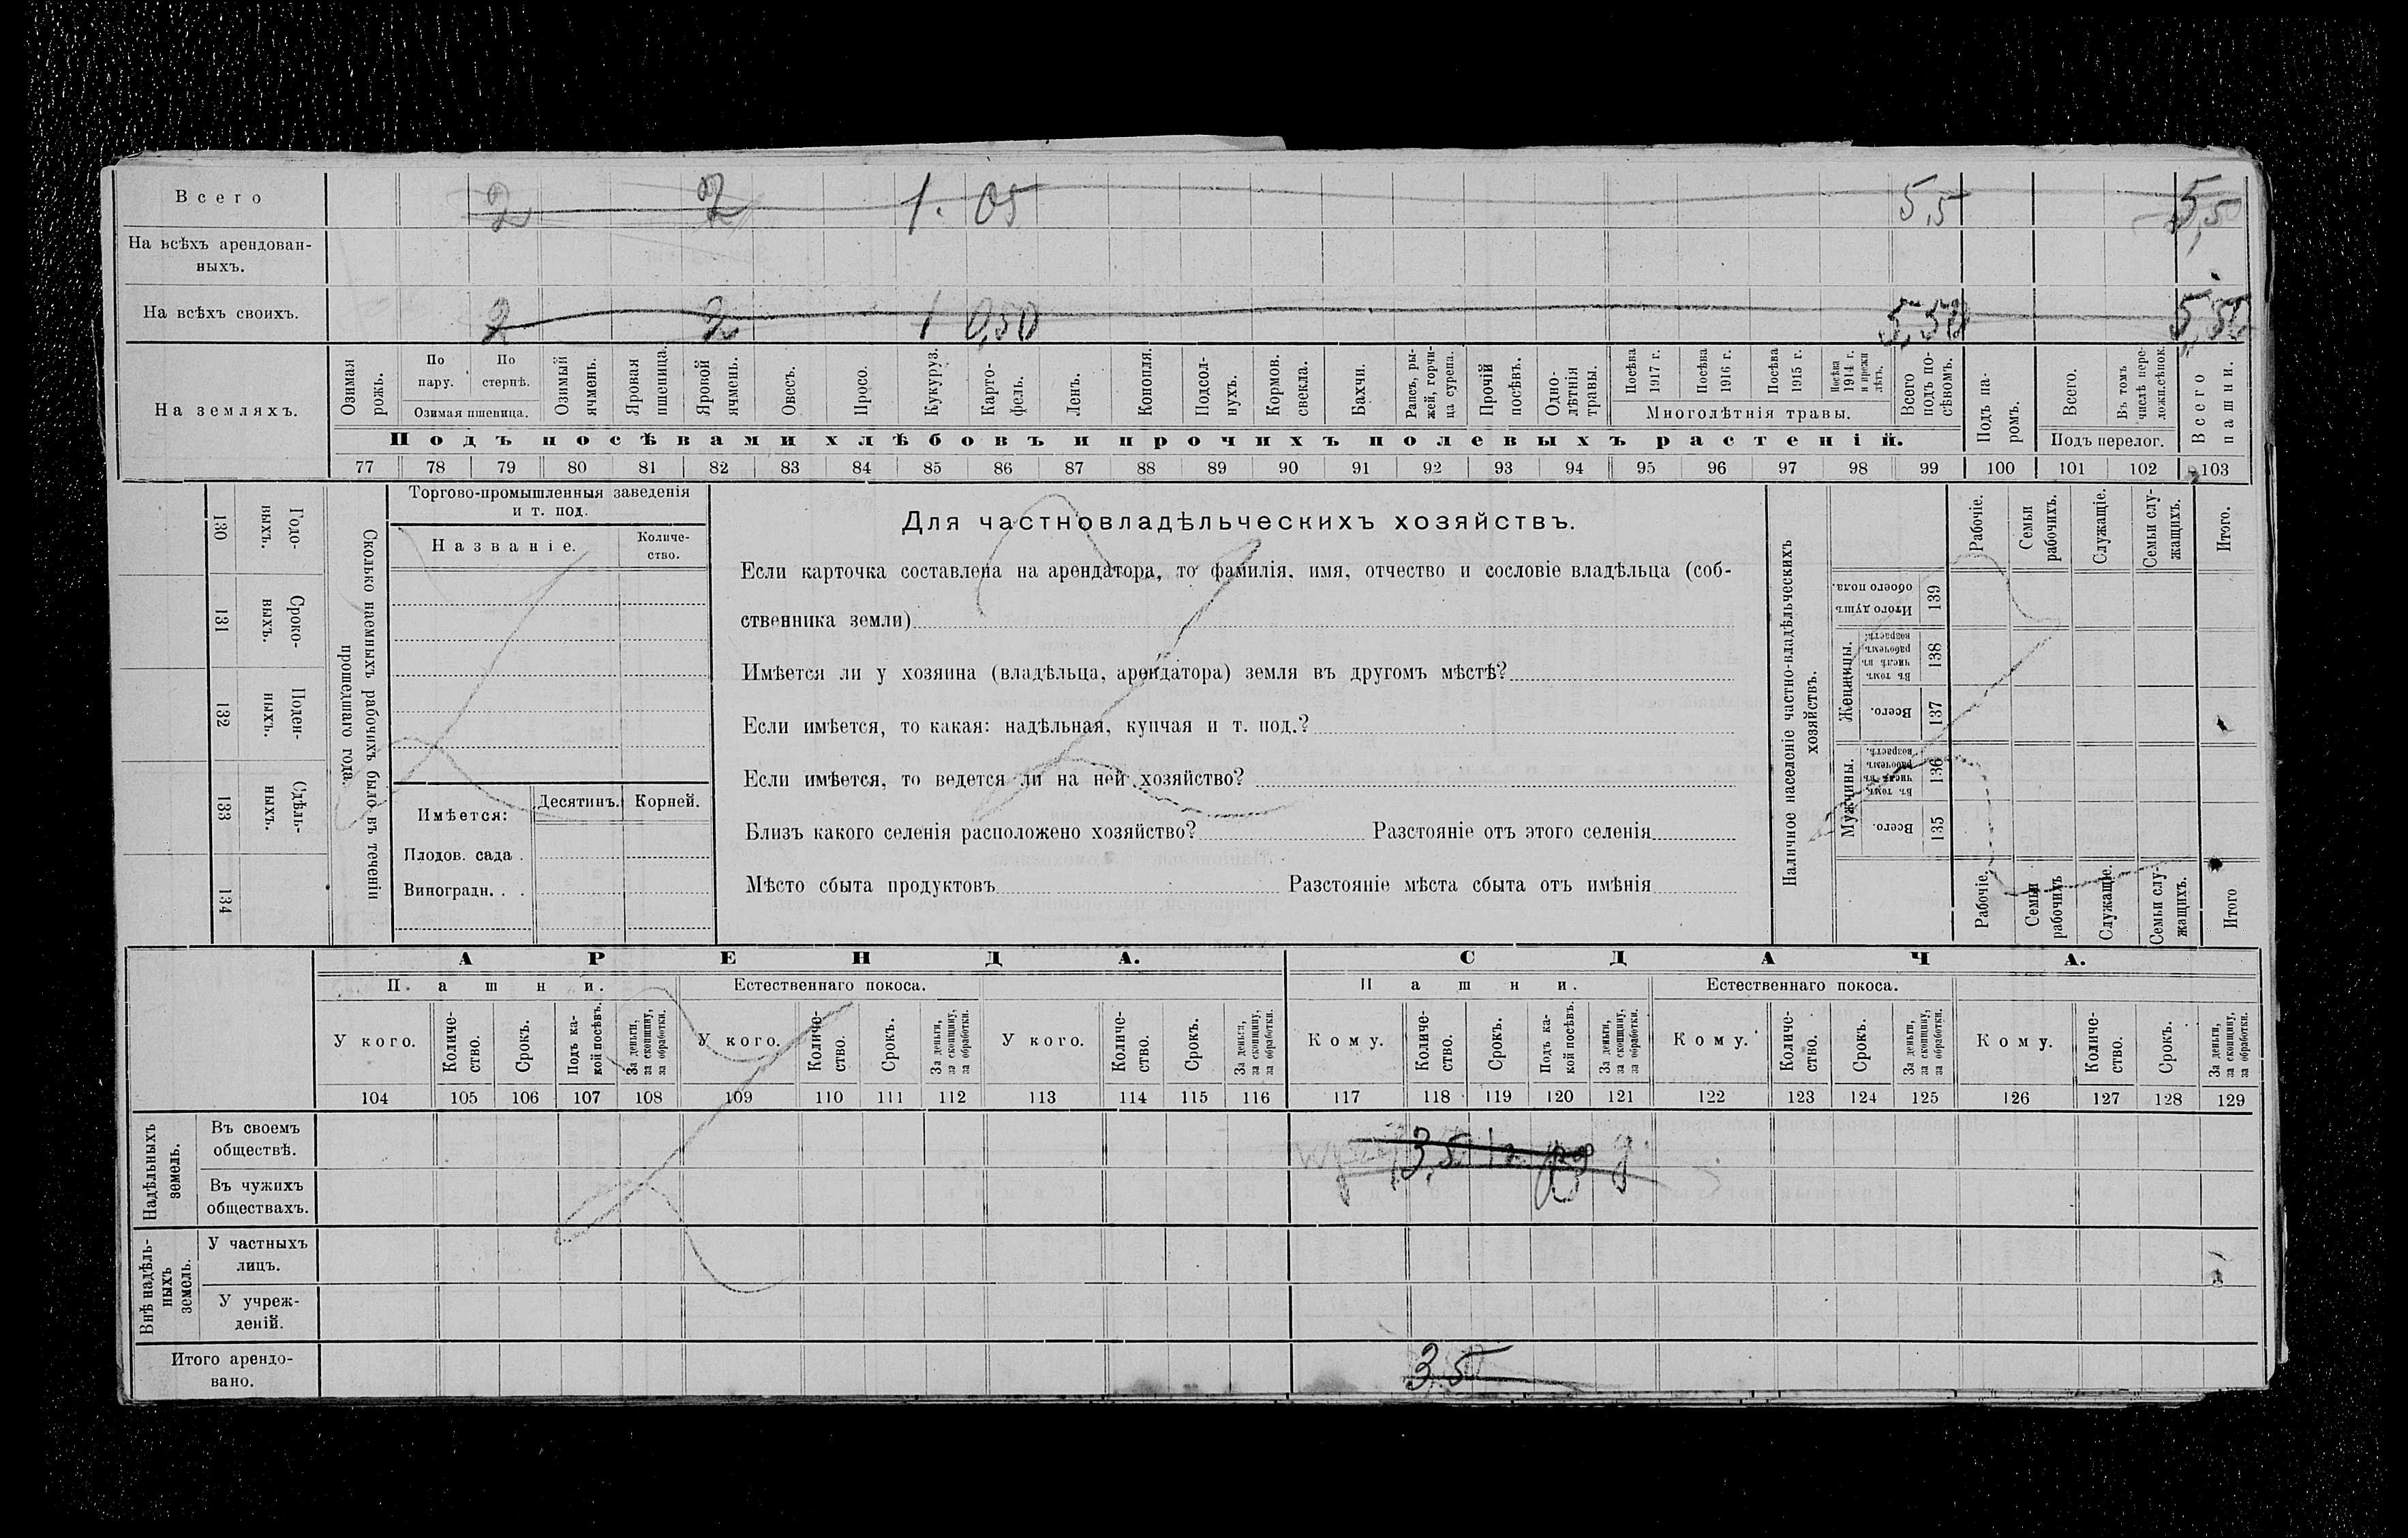 Всего 2 2 1. 05 5,5 5,5
На всѣхъ арендован-
ныхъ.
На всѣхъ своихъ. 2 2 1 0,50 5,50 5,50
На земляхъ.
Озимая рожь.
По пару.
По стернѣ.
Озимая пшевица.
Озимый ячмень.
Яровая пшеница.
Яровой ячмень.
Овесъ.
Просо.
Кукуруз.
Карто-
фель.
Ленъ.
Конопля.
Подсол-
нухъ.
Кормов.
свекла.
Бахчи.
Рапсъ, ры-
жей, горчи-
ца сурепа.
Прочій
посѣвъ.
Одно-
лѣтнія
травы.
Посѣва 1917 г.
Посѣва 1916 г.
Посѣва 1915 г.
Посѣва 1914 г. и прежн лѣтъ.
Многолѣтнія травы.
Всего
подъ по-
сѣвомъ.
Подъ па-
ромъ.
Всего.
Въ томъ
числѣ пере-
ложн.сѣнок.
Подъ перелог.
Всего
пашни.
Подъ посѣвами хлѣбовъ и прочихъ полевыхъ растеній.
77 78 79 80 81 82 83 84 85 86 87 88 89 90 91 92 93 94 95 96 97 98 99 100 101 102 103
130 Годо-
выхъ.
131 Сроко-
выхъ.
132 Поден-
ныхъ.
133 Сдѣль-
ныхъ.
134
Сколько наемныхъ рабочихъ было въ теченіи
прошедшаго года.
Торгово-промышленныя заведенія
и т. под.
Названіе.
Количе-
ство.
Имѣется:
Десятинъ.
Корней.
Плодов. сада .
Виноградн. . .
Для частновладѣльческихъ хозяйствъ.
Если карточка составлена на арендатора, то фамилія, имя, отчество и сословіе владѣльца (соб-
ственника земли)
Имѣется ли у хозяина (владѣльца, арендатора) земля въ другомъ мѣстѣ?
Если имѣется, то какая: надѣльная, купчая и т. под.?
Если имѣется, то ведется ли на ней хозяйство?
Близъ какого селенія расположено хозяйство? Разстояніе отъ этого селенія
Мѣсто сбыта продуктовъ Разстояніе мѣста сбыта отъ имѣнія
Наличное населеніе частно-владѣльческихъ
хозяйствъ.
Рабочіе.
Семьи
рабочихъ.
Служащіе.
Семьи слу-
жащихъ.
Итого.
Итого душъ
обоего пола.
139
Женщины.
Въ томъ
числѣ въ
рабочемъ
возрастѣ.
138
Всего.
137
Мужчины.
Въ томъ
числѣ въ
рабочемъ
возрастѣ.
136
Всего.
135
Рабочіе.
Семьи
рабочихъ
Служащіе.
Семьи слу-
жащихъ.
Итого
АРЕНДА. СДАЧА.
Пашни. Естественнаго покоса. Пашни. Естественнаго покоса.
У кого.
Количе-
ство.
Срокъ.
Подъ ка-
кой посѣвъ.
За деньги,
за скопщину,
за обработки.
У кого.
Количе-
ство.
Срокъ.
За деньги,
за скопщину,
за обработки.
У кого.
Количе-
ство.
Срокъ.
За деньги,
за скопщину,
за обработки.
Кому.
Количе-
ство.
Срокъ.
Подъ ка-
кой посѣвъ.
За деньги,
за скопщину,
за обработки.
Кому.
Количе-
ство.
Срокъ.
За деньги,
за скопщину,
за обработки.
Кому.
Количе-
ство.
Срокъ.
За деньги,
за скопщину,
за обработки.
104 105 106 107 108 109 110 111 112 113 114 115 116 117 118 119 120 121 122 123 124 125 126 127 128 129
Надѣльныхъ
земель.
Въ своемъ
обществѣ.
3,5
Въ чужихъ
обществахъ.
Внѣ надѣль-
ныхъ
земель.
У частныхъ
лицъ.
У учреж-
деній.
Итого арендо-
вано.
3.5